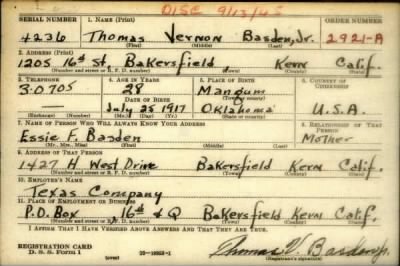 DISC 9/13/45
SERIAL NUMBER 1. Name (Print) ORDER NUMBER
4236 Thomas Vernon Basden, Jr. 2921-A
(First) (Middle) (Last)
2. Address (Print)
1205 16th St, Bakersfield Kern Calif.
(Number and street or R. F. D. number) (Town) (County) (State)
3. Telephone 4. Age in Years 5. Place of Birth 6. Country of Citizenship
3-0705 28 Mangum
Date of Birth (Town or county)
July 25 1917 Oklahoma U.S.A.
(Exchange) (Number) (Mo.) (Day) (Yr.) (State or country)
7. Name of Person Who Will Always Know Your Address 8. Relationship of That Person
Essie F. Basden Mother
(Mr., Mrs., Miss) (First) (Middle) (Last)
9. Address of That Person
1427 H West Drive Bakersfield Kern Calif.
(Number and street or R. F. D. number) (Town) (County) (State)
10. Employer's Name
Texas Company
11. Place of Employment or Business
P.O. Box 16th & Q Bakersfield Kern Calif.
(Number and street or R. F. D. number) (Town) (County) (State)
I Affirm That I Have Verified Above Answers and That They Are True.
REGISTRATION CARD
D. S. S. Form 1 (over) Thomas V. Basden Jr.
(Registrant's signature)